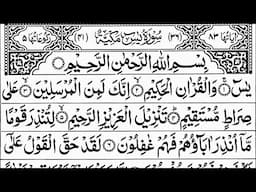 اٰيَاتُهَا ٨٣ (٣٦) سُوْرَةُ يٰسٓ مَكِّيَّةٌ (٤١) رُكُوْعَاتُهَا ٥
بِسْمِ اللّٰهِ الرَّحْمٰنِ الرَّحِيْمِ ۝
يٰسٓ ۝ وَالْقُرْاٰنِ الْحَكِيْمِ ۝ اِنَّكَ لَمِنَ الْمُرْسَلِيْنَ ۝ عَلٰى
صِرَاطٍ مُّسْتَقِيْمٍ ۝ تَنْزِيْلَ الْعَزِيْزِ الرَّحِيْمِ ۝ لِتُنْذِرَ قَوْمًا
مَّآ اُنْذِرَ اٰبَآؤُهُمْ فَهُمْ غٰفِلُوْنَ ۝ لَقَدْ حَقَّ الْقَوْلُ عَلٰٓى